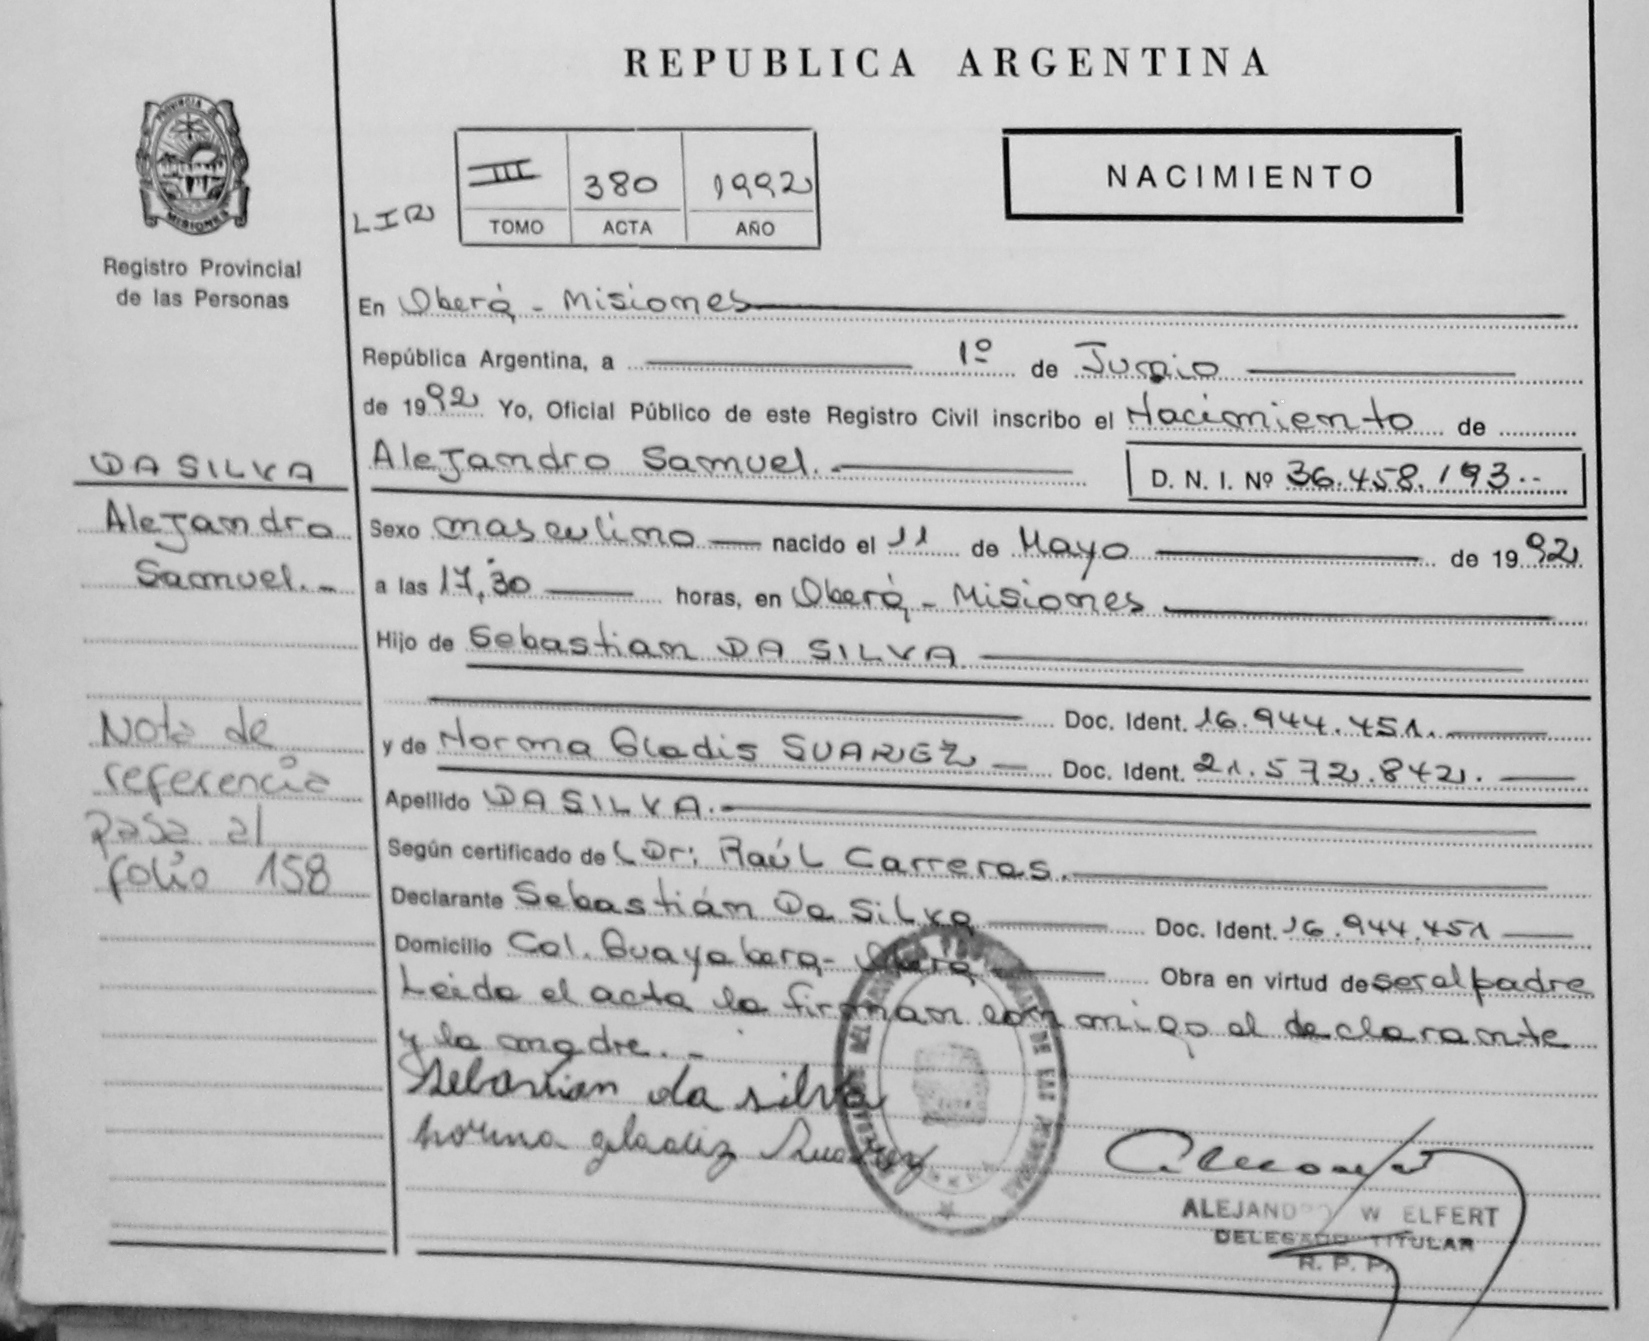 REPUBLICA ARGENTINA
PROVINCIA DE
MISIONES
Registro Provincial
de las Personas
NACIMIENTO
III 380 1992
TOMO ACTA AÑO
En Oberá - Misiones
República Argentina, a 1º de Junio
de 1992 Yo, Oficial Público de este Registro Civil inscribo el Nacimiento de
Alejandro Samuel. D. N. I. Nº 36.458.193.--
Sexo masculino nacido el 11 de Mayo de 1992
a las 17,30 horas, en Oberá - Misiones
Hijo de Sebastian DA SILVA
Doc. Ident. 16.944.451.
y de Norma Gladis SUAREZ Doc. Ident. 21.572.842.
Apellido DA SILVA.
Según certificado de Dr: Raúl Carreras.
Declarante Sebastián Da Silva Doc. Ident. 16.944.451
Domicilio Col. Guayabera - Oberá Obra en virtud de ser el padre
Leida el acta la firman conmigo el declarante
y la madre. -
Sebastian da silva
norma gladiz Suarez
ALEJANDRO W ELFERT
DELEGADO TITULAR
R. P. P.
DA SILVA
Alejandro
Samuel. -
Nota de
referencia
pasa al
folio 158